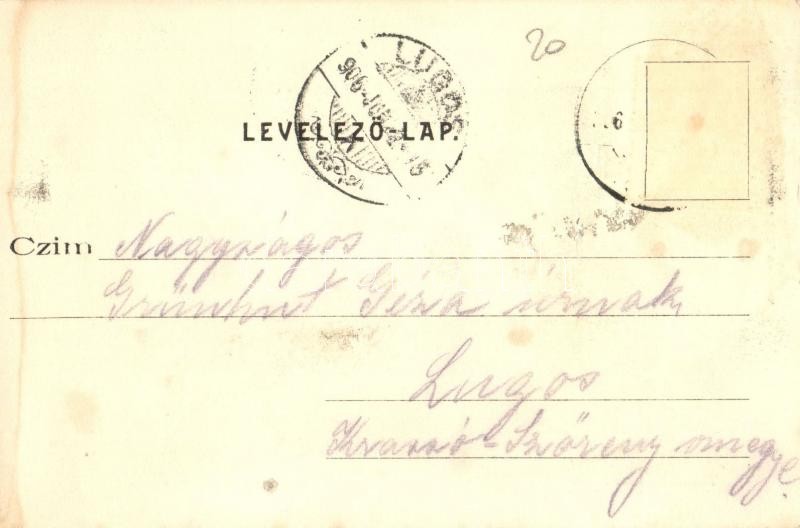 20
LUGOS
906
6
LEVELEZŐ-LAP.
Czim Nagyságos
Grünhut Géza úrnak
Lugos
Krassó-Szörény megye.